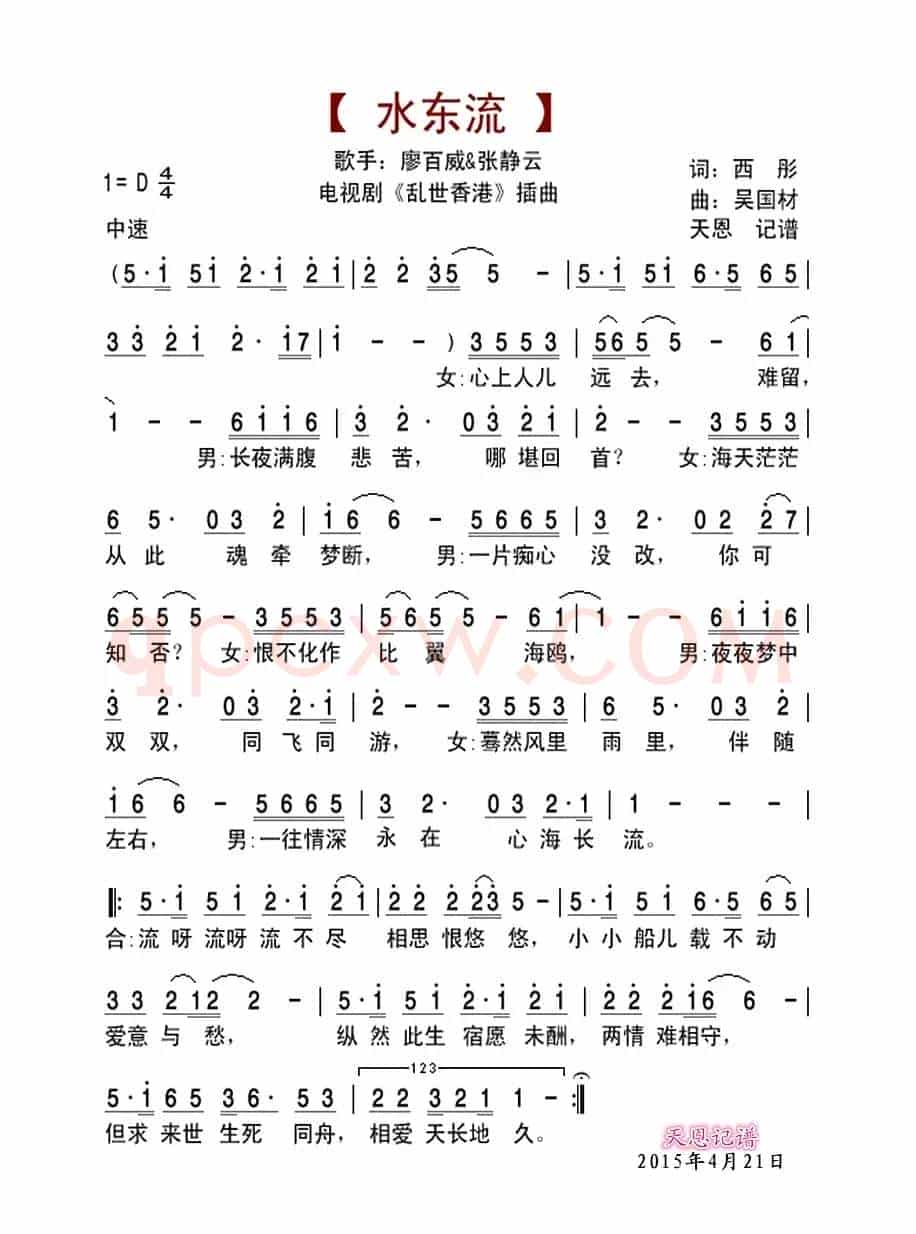 【 水东流 】
歌手：廖百威&张静云
1= D 4/4
词：西 彤
电视剧《乱世香港》插曲
曲：吴国材
中速
天恩 记谱
(5·i 51 2·i 2i | 2 2 35 5 - | 5·i 5i 6·5 65 |
3 3 2i 2· i7 | i - - ) 3553 | 565 5 - 6i |
女:心上人儿 远 去， 难留，
1 - - 6ii6 | 3 2· 03 2i | 2 - - 3553 |
男:长夜满腹 悲 苦， 哪 堪回 首？ 女:海天茫茫
6 5· 03 2 | i6 6 - 5665 | 3 2· 02 27 |
从 此 魂 牵 梦断， 男:一片痴心 没 改， 你 可
655 5 - 3553 | 565 5 - 61 | 1 - - 6ii6 |
知 否？ 女:恨不化作 比 翼 海鸥， 男:夜夜梦中
3 2· 03 2·i | 2 - - 3553 | 6 5· 03 2 |
双 双， 同 飞 同 游， 女:蓦然风里 雨 里， 伴 随
i6 6 - 5665 | 3 2· 03 2·1 | 1 - - - |
左右， 男:一往情深 永 在 心 海 长 流。
‖: 5·i 5i 2·i 2i | 22 223 5 - | 5·i 5i 6·5 65 |
合:流 呀 流呀 流 不 尽 相思 恨悠 悠， 小 小 船儿 载 不 动
33 212 2 - | 5·i 5i 2·i 2i | 22 2i6 6 - |
爱意 与 愁， 纵 然 此生 宿愿 未酬， 两情 难相守，
123
5·i 65 35 65 | 22 321 1 - :‖
但求 来世 生死 同舟， 相爱 天长地 久。
天恩记谱
2015年4月21日
qpcxw.COM